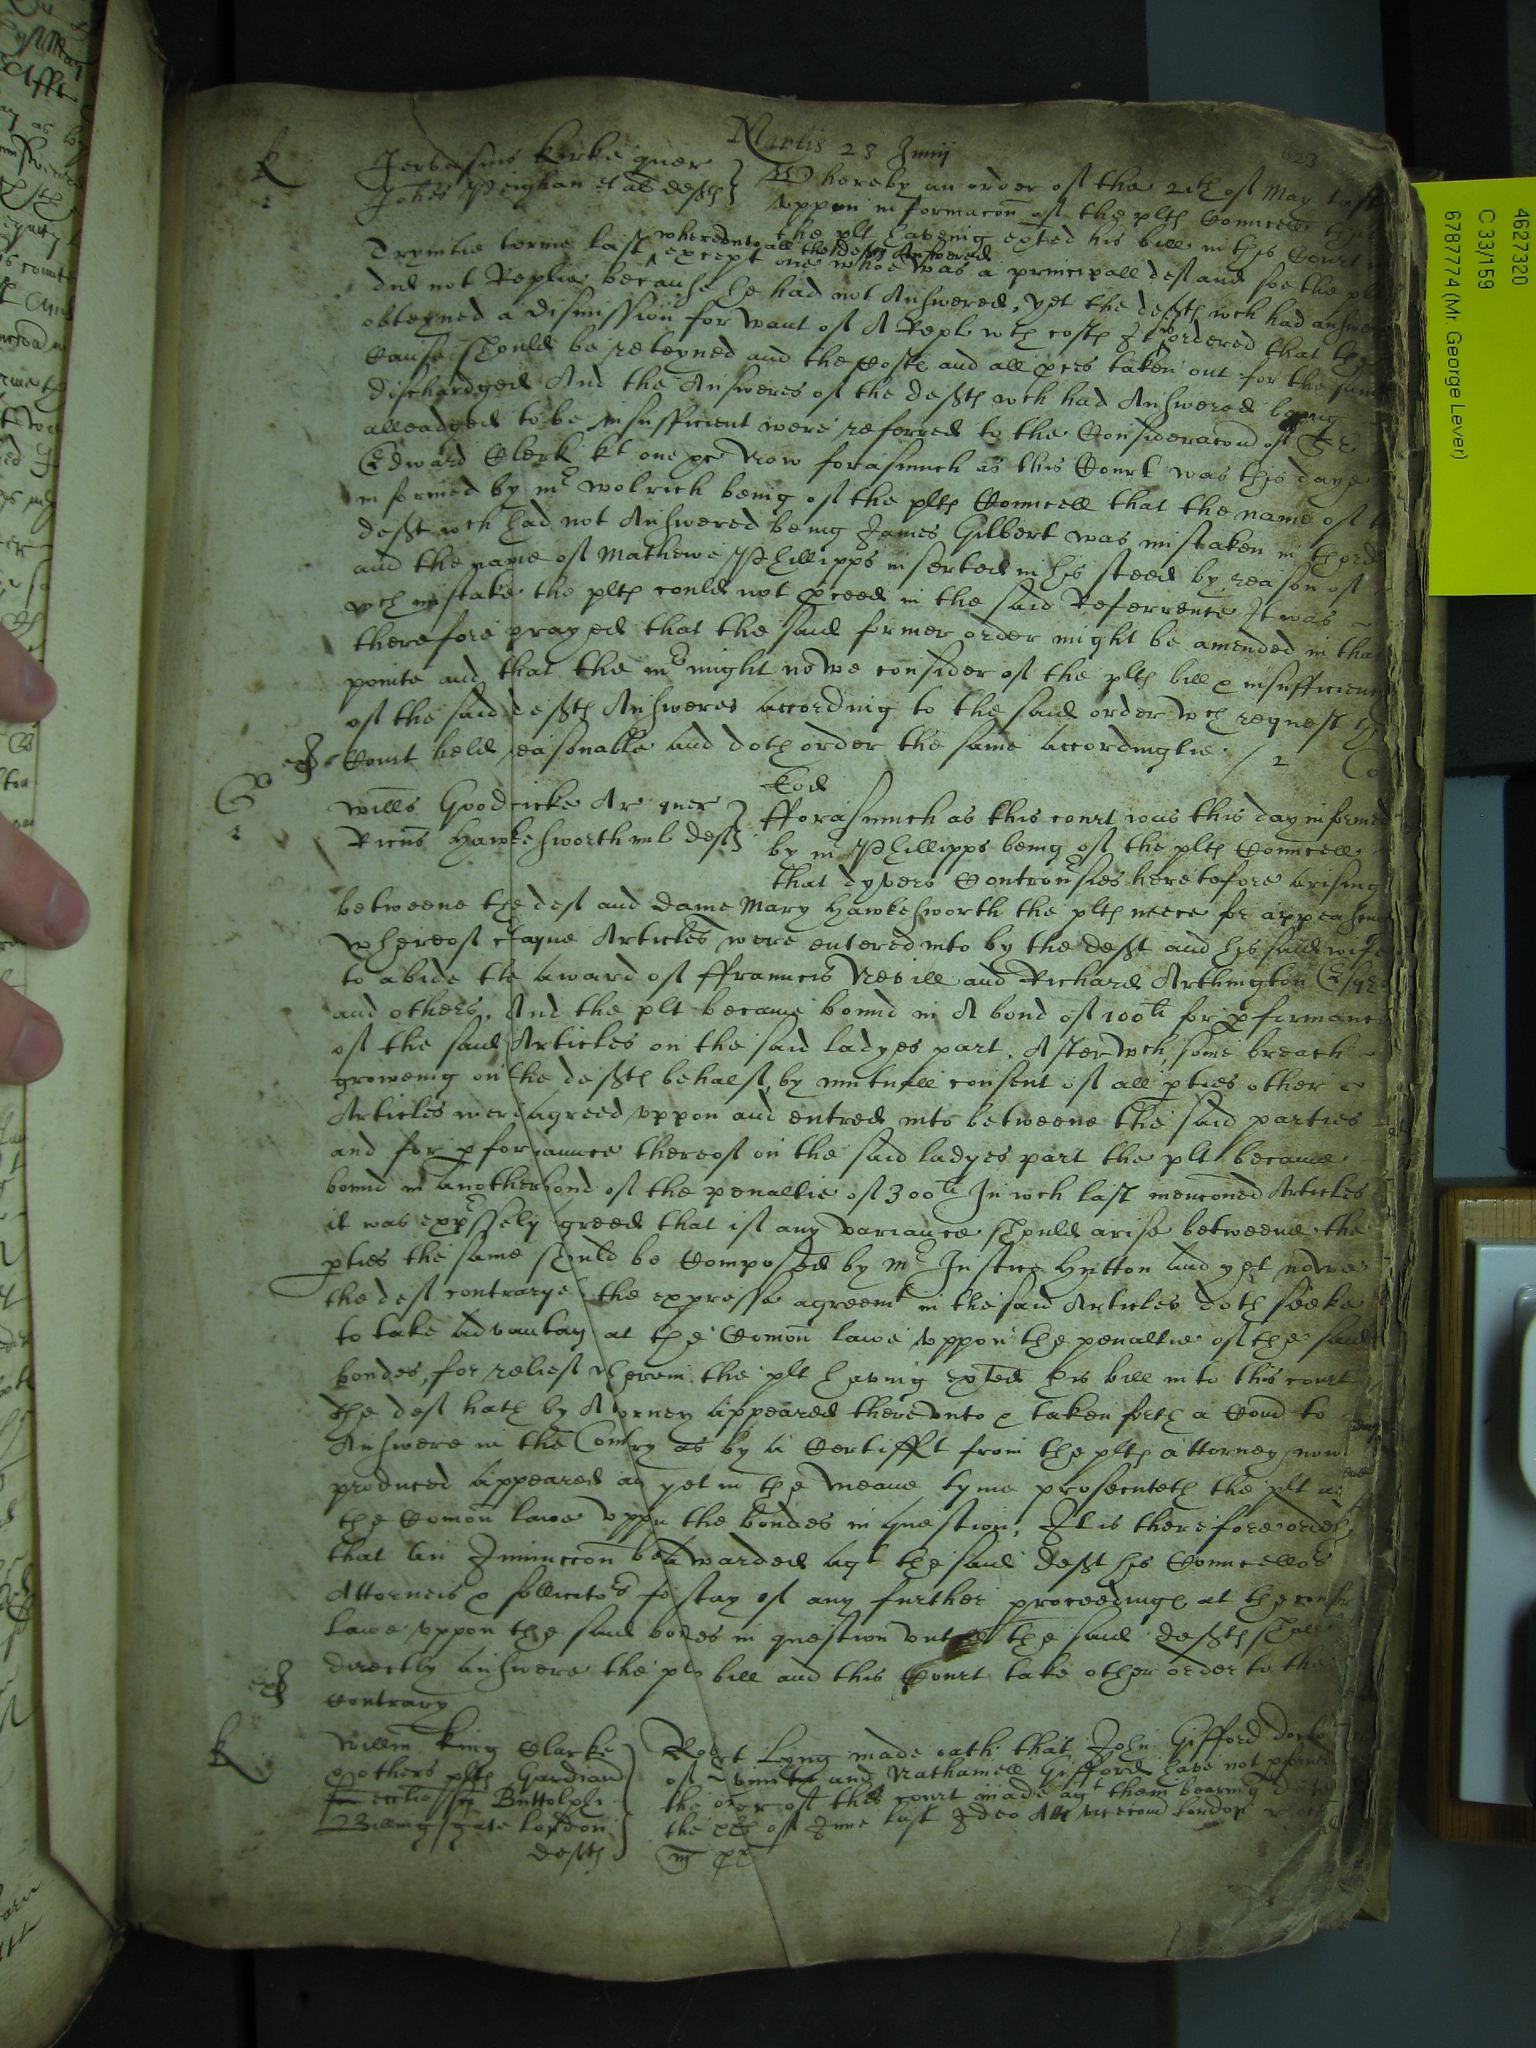 Martis 28 Junij
623
K
Jervasius Kerke quer
Johes Vaughan et al defts
Whereby an order of the 24th of May last
uppon informacon of the plts Councell that
the plt having exhted his bill in this Court in
Trynitie terme last whereunto all the defts Answered
except one whoe was a principall deft and soe the plt
did not Replie because he had not Answered, yet the defts wch had answered
obteyned a dismission for want of A Repl wth costs It was ordered that the
Cause should be reteyned and the Costs and all pces taken out for the same
dischardged And the Answeres of the defts wch had Answered being
alleadged to be insufficient were referred to the Consideracon of Sr
Edward Clerk kt one &c Now forasmuch as this Court was this daye
informed by mr Wolrich being of the plts Councell that the name of the
deft wch had not Answered being James Gilbert was mistaken in thord
and the name of Mathewe Phillipps inserted in his steed by reason of
wch mistake the plts could not pceed in the said Referrence It was
therefore prayed that the said former order might be amended in that
pointe and that the mr might nowe consider of the plts bill & insufficiency
of the said defts Answeres according to the said order wch request the
Court held reasonable and doth order the same accordinglie / 2 Co
exr
G
2
Willus Goodricke Ar quer
Ricus Hawkesworth mil deft
Eod
fforasmuch as this court was this day informed
by mr Phillipps being of the plts Councell
that dyvers Controusies heretofore arising
betweene the deft and dame Mary Hawkesworth the plts neece for appeasing
whereof ctayne Articles were entered into by the deft and his said wife
to abide the award of ffrauncis Nevill and Richard Arthington Esqrs
and others, And the plt became bound in A bond of 100li for pformance
of the said Articles on the said ladyes part. After wch some breach
groweing on the defts behalf, by mutuall consent of all pties other
Articles were agreed uppon and entred into betweene the said parties
and for pformance thereof on the said ladyes part the plt became
bound in another bond of the penaltie of 300li In wch last menconed Articles
it was expressely greed that if any variance should arise betweene the
pties the same should be Composed by mr Justice Hutton And yet nowe
the deft contrarye the expresse agreemt in the said Articles doth seeke
to take advantag at the Comon lawe uppon the penaltie of the said
bondes, for relief wherein the plt having exhted his bill in to this court
the deft hath by Attorney Appeared thereunto & taken forth a Comd to
Answere in the Contry as by A Certifft from the plts attorney now
produced Appeared and yet in the meane tyme prosecuteth the plt at
the Comon lawe uppn the bondes in question, It is therefore ordered
that An Iniunccon be Awarded agt the said deft his Councellors
Attorneis & sollicitors for stay of any further proceedings at the comon
lawe uppon the said bodes in question untill the said defts shall
directly answere the pls bill and this Court take other order to the
contrary
exr
K
Willm King Clarke
& others plts Gardian
ecclie Buttolphs
Billingsgate London
defts
Robert Lyng made oath that John Gifford Doctor
of divinitie and Nathaniell Gifford have not pformed
the order of this court made agt them bearing date
the xxth of June last Ideo Att vicecom London